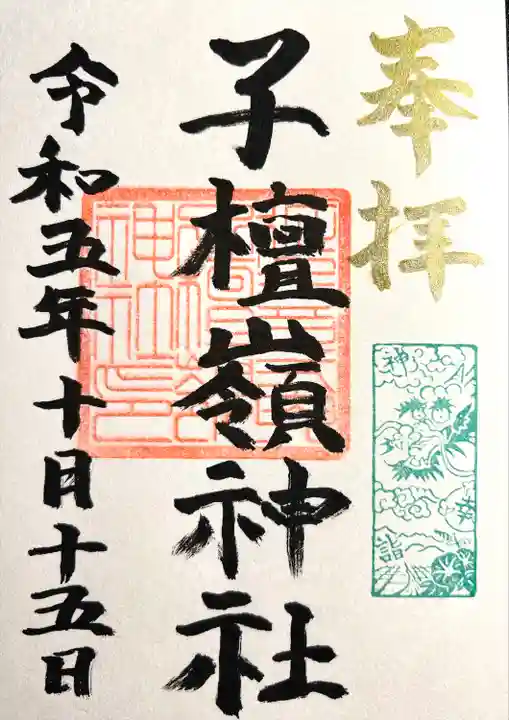 奉拝
子檀嶺神社
令和五年十月十五日
神
詣